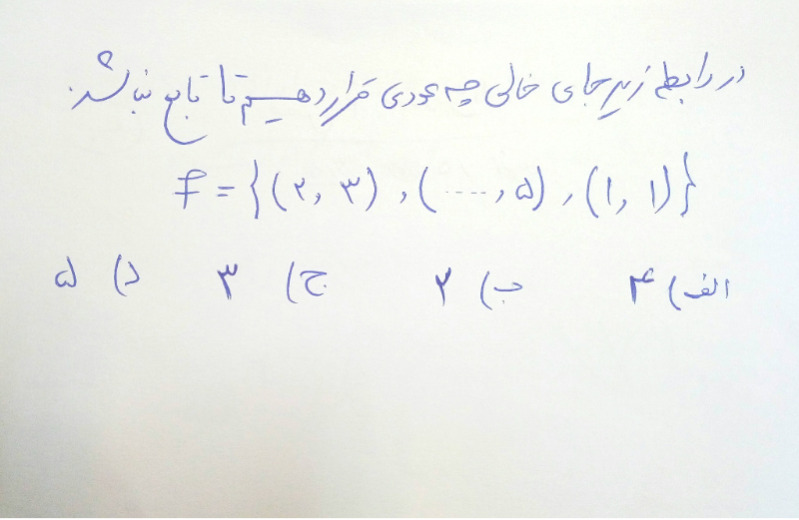 در رابطه زیر جای خالی چه عددی قرار دهیم تا تابع نباشد؟
f = {(۲, ۳) , (...., ۵) , (۱, ۱)}
الف) ۴ ب) ۲ ج) ۳ د) ۵